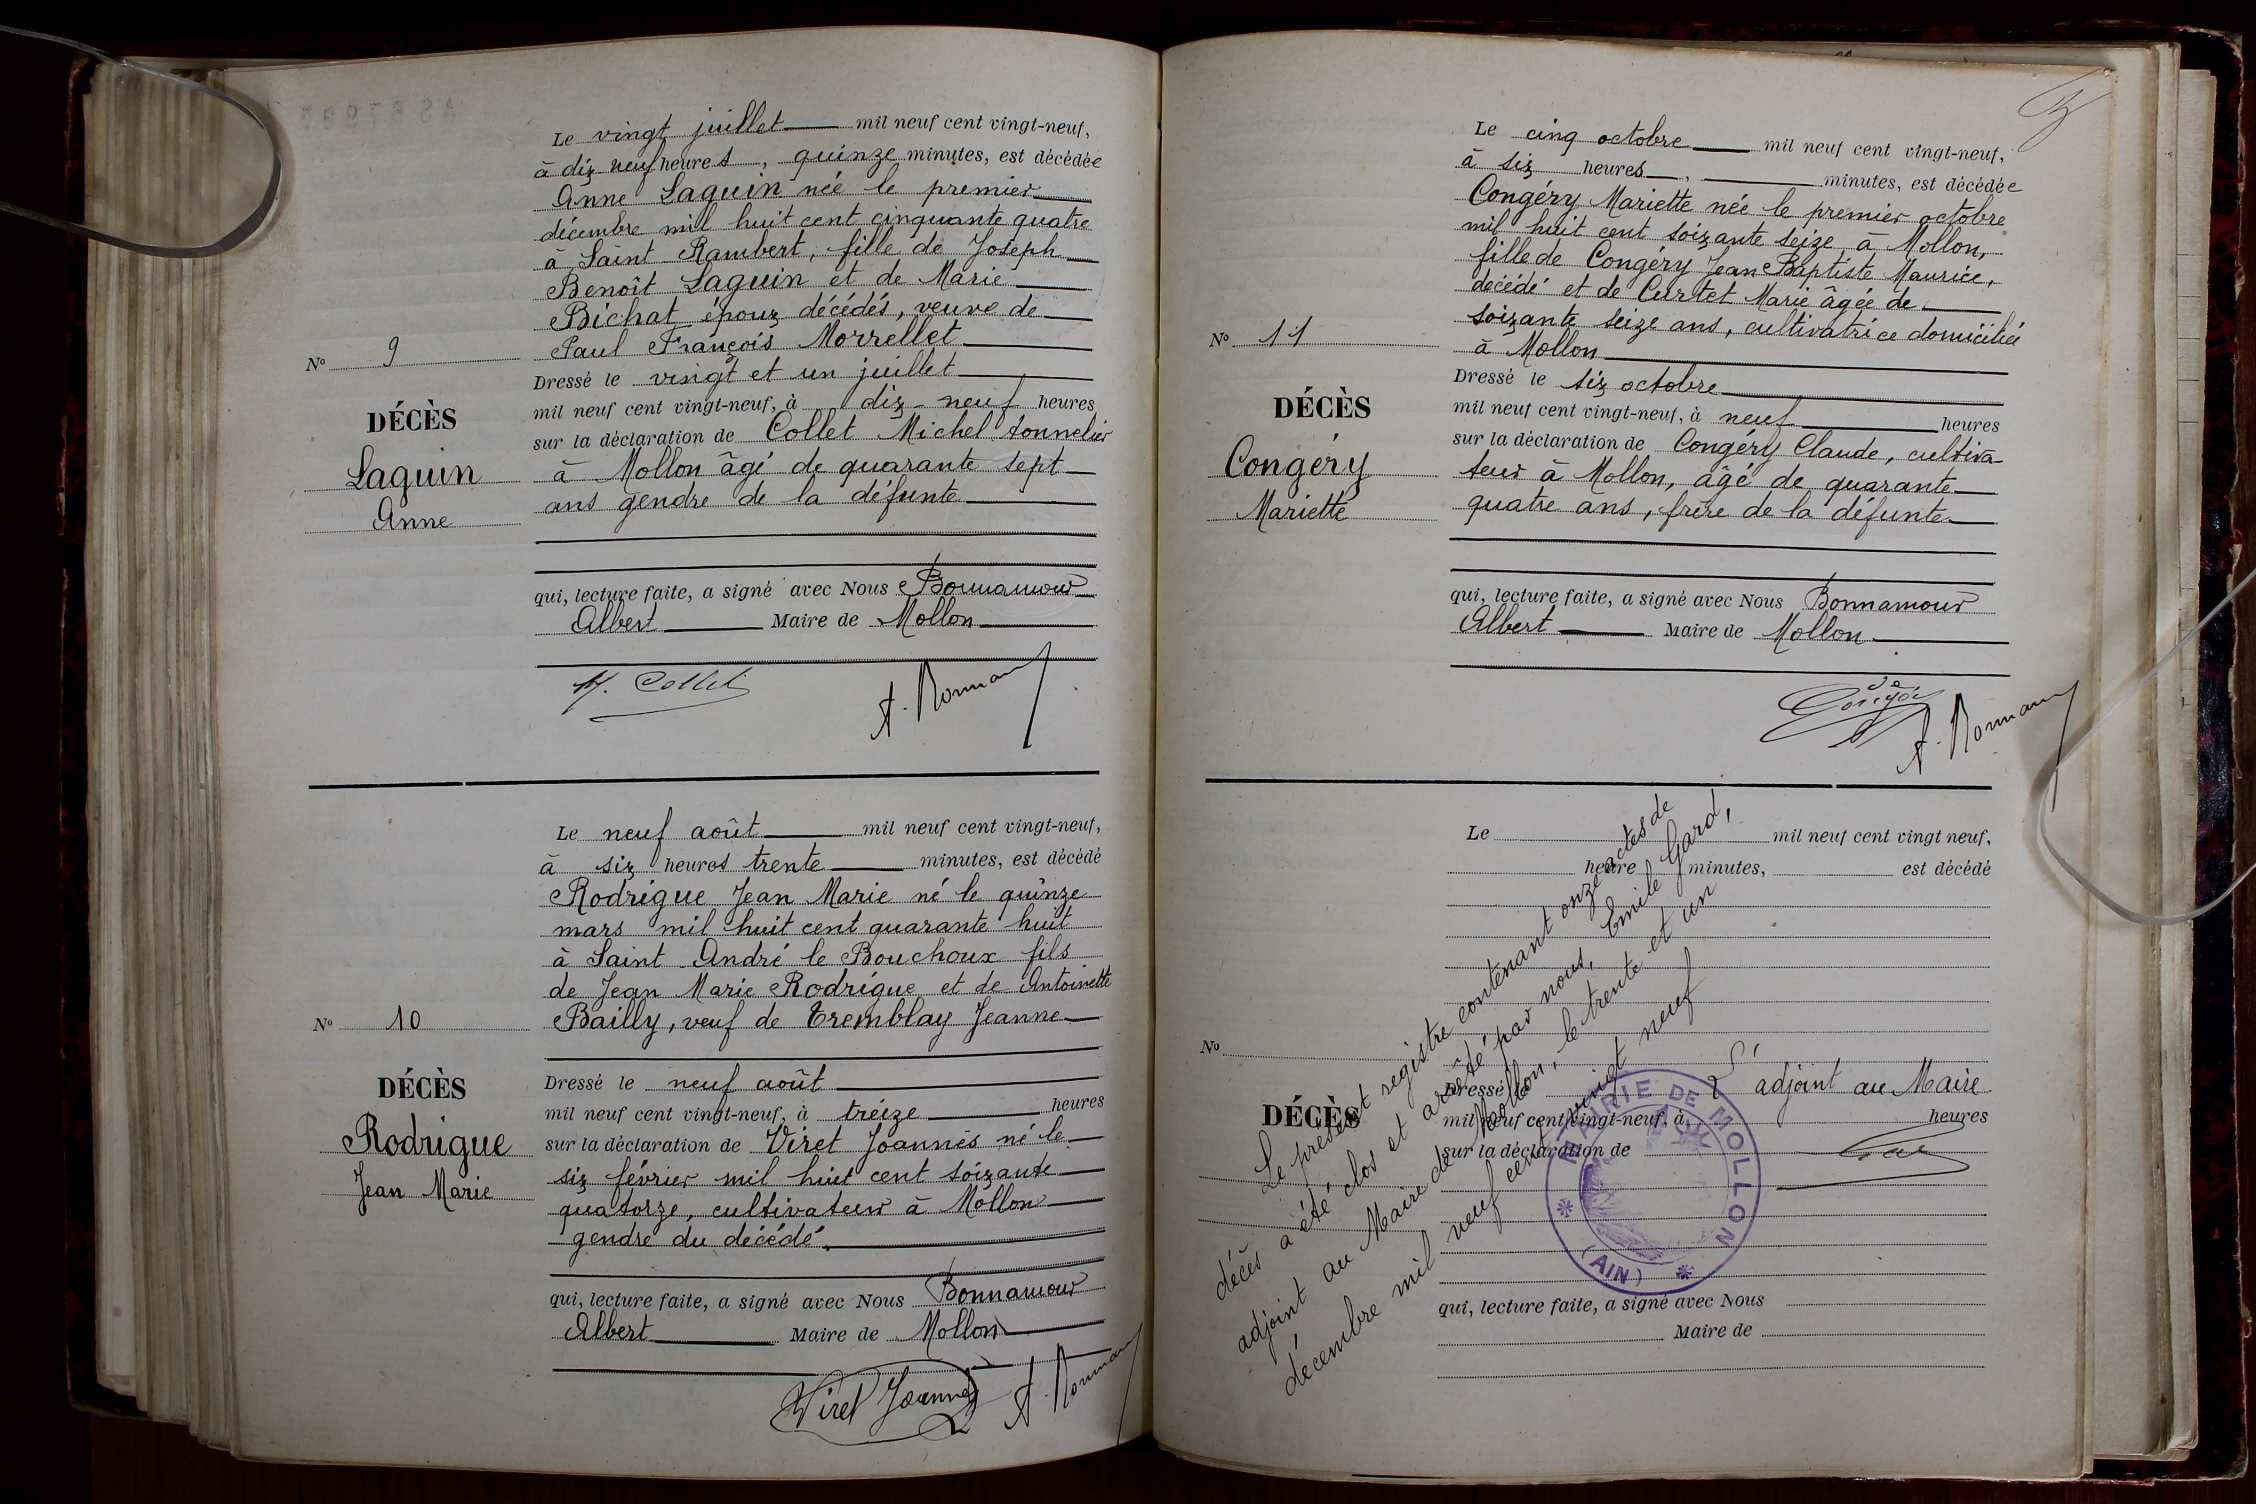 Le vingt juillet mil neuf cent vingt-neuf,
à dix neuf heures, quinze minutes, est décédée
Anne Laguin née le premier
décembre mil huit cent cinquante quatre
à Saint Rambert, fille de Joseph
Benoît Laguin et de Marie
Bichat époux décédés, veuve de
Paul François Morrellet
No 9
Dressé le vingt et un juillet
mil neuf cent vingt-neuf, à dix-neuf heures
DÉCÈS
sur la déclaration de Collet Michel tonnelier
Laguin
à Mollon âgé de quarante sept
Anne
ans gendre de la défunte
qui, lecture faite, a signé avec Nous Bonnamour
Albert Maire de Mollon
M. Collet
A. Bonnamour
Le neuf août mil neuf cent vingt-neuf,
à six heures trente minutes, est décédé
Rodrigue Jean Marie né le quinze
mars mil huit cent quarante huit
à Saint André le Bouchoux fils
de Jean Marie Rodrigue et de Antoinette
No 10
Bailly, veuf de Tremblay Jeanne
DÉCÈS
Dressé le neuf août
mil neuf cent vingt-neuf, à treize heures
Rodrigue
sur la déclaration de Viret Joannès né le
Jean Marie
six février mil huit cent soixante
quatorze, cultivateur à Mollon
gendre du décédé.
qui, lecture faite, a signé avec Nous Bonnamour
Albert Maire de Mollon
Viret Joannès
A. Bonnamour
Le cinq octobre mil neuf cent vingt-neuf,
à six heures, minutes, est décédée
Congéry Mariette née le premier octobre
mil huit cent soixante seize à Mollon,
fille de Congéry Jean Baptiste Maurice,
décédé et de Curtet Marie âgée de
soixante seize ans, cultivatrice domiciliée
No 11
à Mollon
Dressé le six octobre
DÉCÈS
mil neuf cent vingt-neuf, à neuf heures
sur la déclaration de Congéry Claude, cultiva-
Congéry
teur à Mollon, âgé de quarante
Mariette
quatre ans, frère de la défunte
qui, lecture faite, a signé avec Nous Bonnamour
Albert Maire de Mollon
A. Bonnamour
Le mil neuf cent vingt neuf,
heure minutes, est décédé
No
DÉCÈS
Dressé le
mil neuf cent vingt-neuf, à heures
sur la déclaration de
qui, lecture faite, a signé avec Nous
Maire de
Le présent registre contenant onze actes de
décès a été clos et arrêté par nous, Emile Gard,
adjoint au Maire de Mollon, le trente et un
décembre mil neuf cent vingt neuf
L'adjoint au Maire
Gard
MAIRIE DE MOLLON
(AIN)